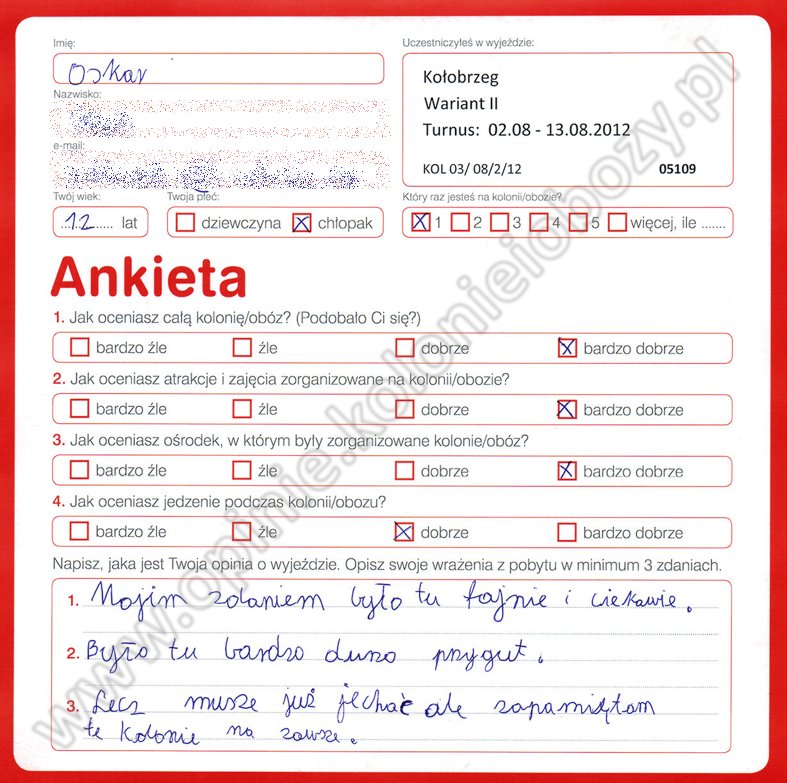 Imię:
Oskar
Nazwisko:
e-mail:
Twój wiek:
12 lat
Twoja płeć:
dziewczyna chłopak
Uczestniczyłeś w wyjeździe:
Kołobrzeg
Wariant II
Turnus: 02.08 - 13.08.2012
KOL 03/ 08/2/12 05109
Który raz jesteś na kolonii/obozie?
1 2 3 4 5 więcej, ile .......
Ankieta
1. Jak oceniasz całą kolonię/obóz? (Podobało Ci się?)
bardzo źle źle dobrze bardzo dobrze
2. Jak oceniasz atrakcje i zajęcia zorganizowane na kolonii/obozie?
bardzo źle źle dobrze bardzo dobrze
3. Jak oceniasz ośrodek, w którym były zorganizowane kolonie/obóz?
bardzo źle źle dobrze bardzo dobrze
4. Jak oceniasz jedzenie podczas kolonii/obozu?
bardzo źle źle dobrze bardzo dobrze
Napisz, jaka jest Twoja opinia o wyjeździe. Opisz swoje wrażenia z pobytu w minimum 3 zdaniach.
1. Mojim zdaniem było tu fajnie i ciekawie.
2. Było tu bardzo durzo przygut.
3. Lecz musze już jechać ale zapamiętam
te kolonie na zawsze.
www.opinie.kolonieiobozy.pl